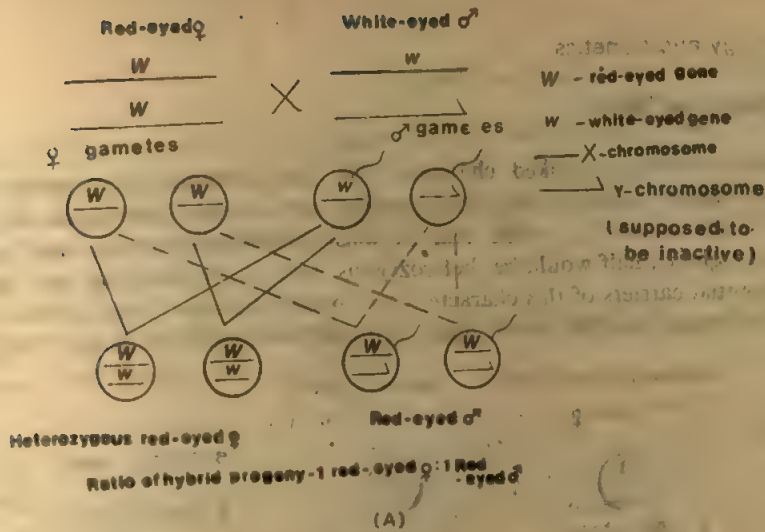 Red-eyed♀
White-eyed ♂
W
w
W - red-eyed gene
W
w -white-eyed gene
♀ gametes
♂ game es
—X-chromosome
Y-chromosome
(supposed to
be inactive)
W
W
w
W
w
W
w
W
W
Heterozygous red-eyed ♀
Red-eyed ♂
Ratio of hybrid progeny-1 red-eyed ♀:1 Red
-eyed ♂
(A)